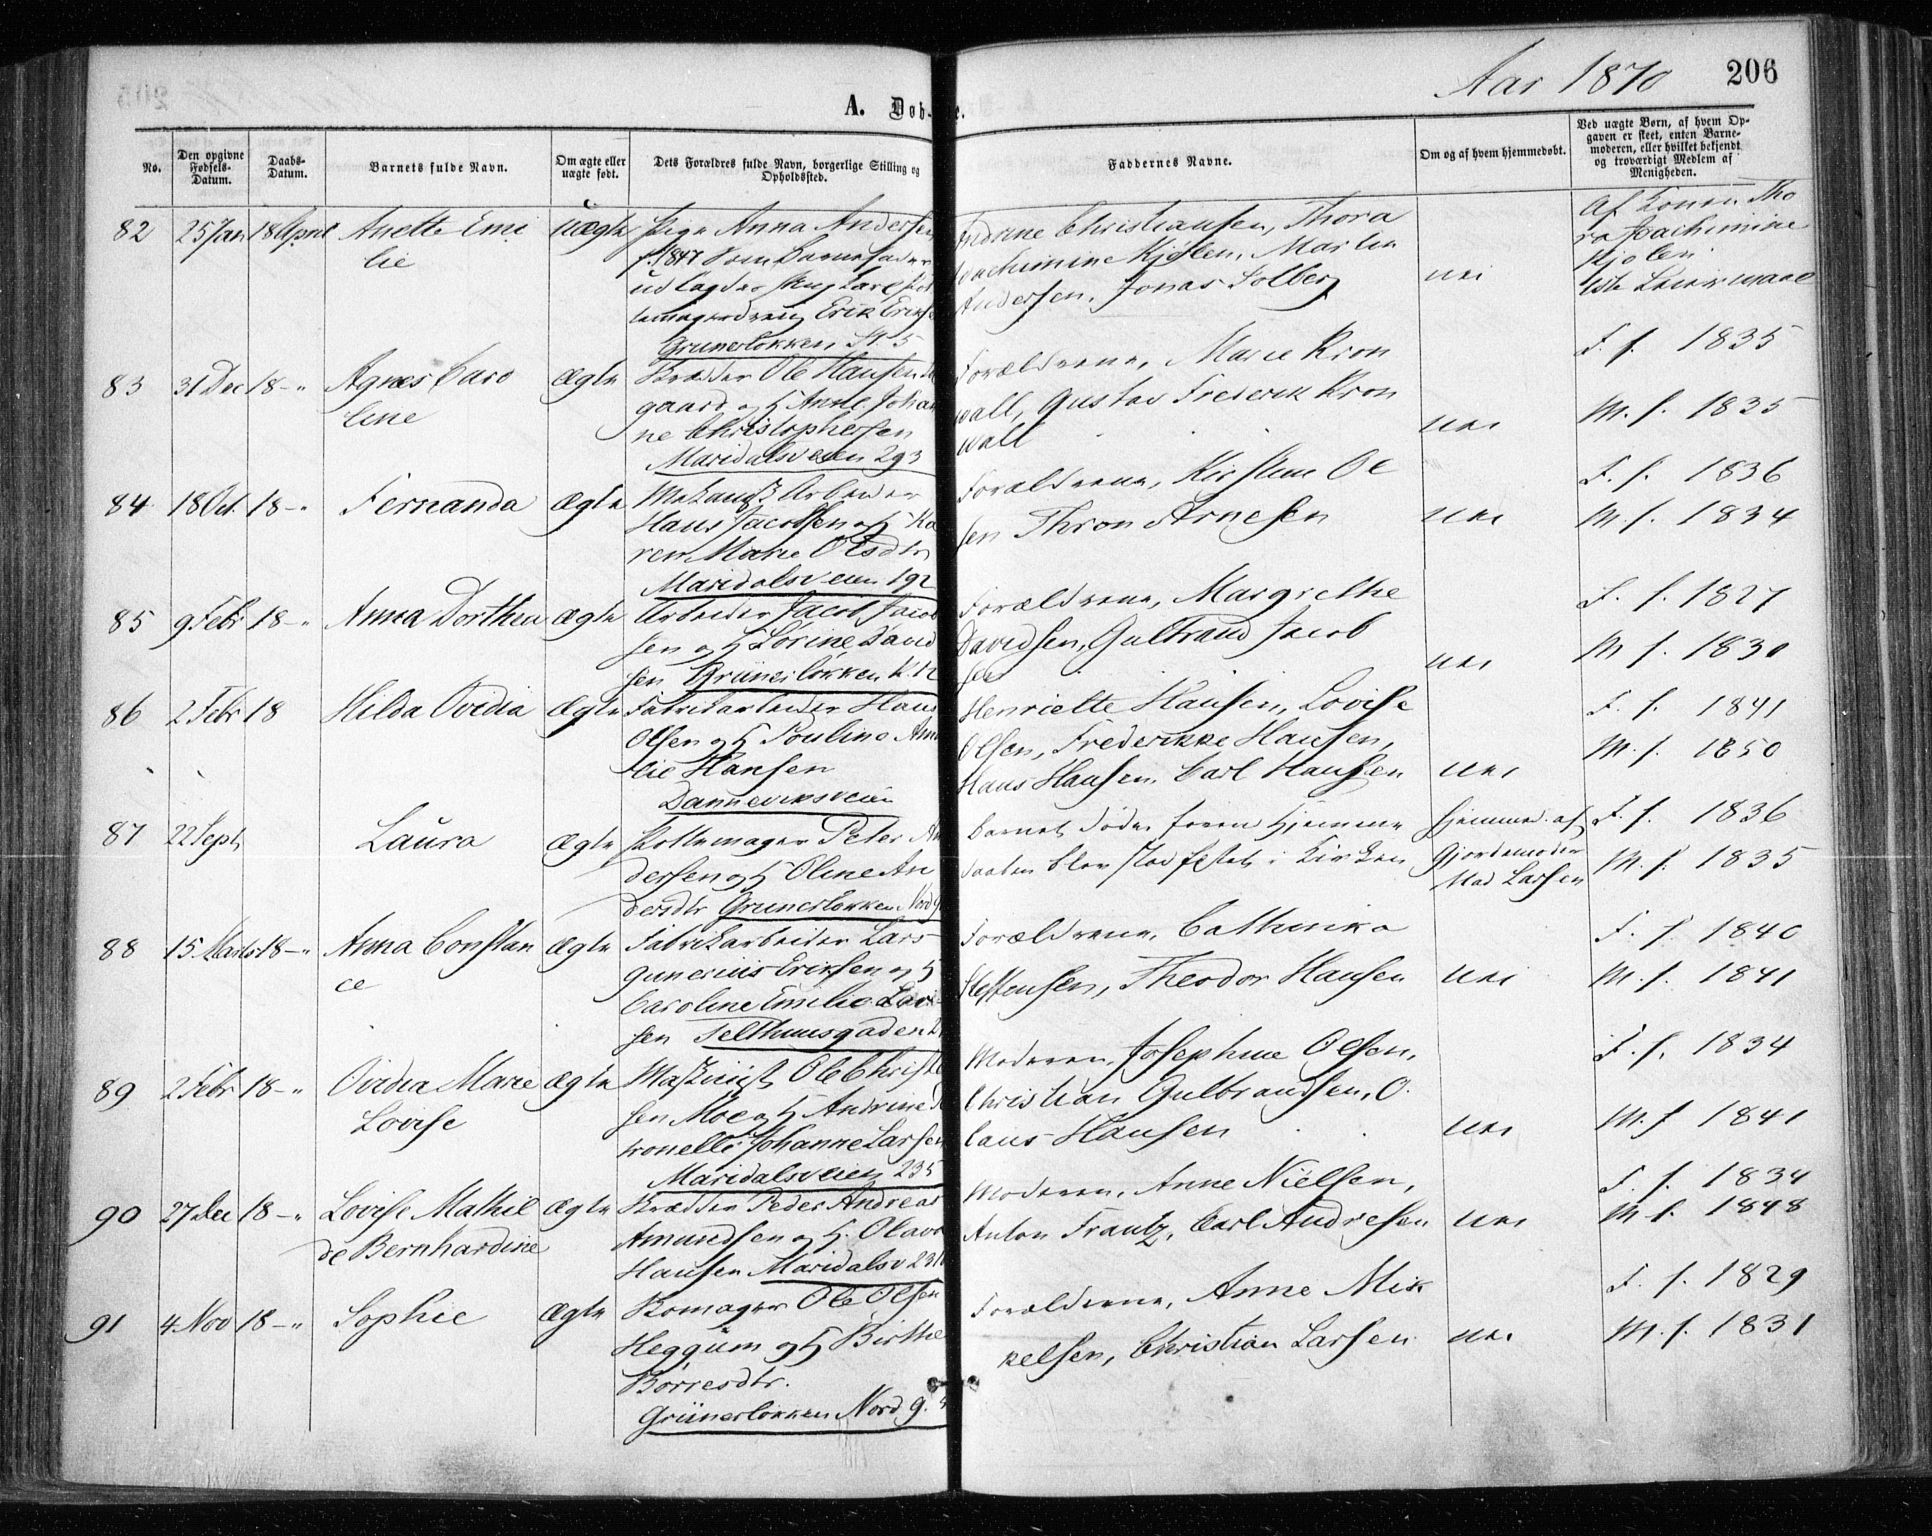 Aar 1870
206
A. Døb-
e.
No.
Den opgivne Fødsels-Datum.
Daabs-Datum.
Barnets fulde Navn.
Om ægte eller uægte født.
Dets Forældres fulde Navn, borgerlige Stilling og Opholdssted.
Faddernes Navne.
Om og af hvem hjemmedøbt.
Ved uægte Børn, af hvem Opgaven er skeet, enten Barnemoderen, eller hvilket bekjendt og troværdigt Medlem af Menigheden.
82 25 Jan 18 April Anette Emi
lie
uægte
Pige Anna Andersen
f. 1847 som Barnefader
udlagdes
Erik Eriks
Grunerløkken St. 5
Andrine Christiansen, Thora
Joachimine Kjølen, Martin
Andersen, Jonas Solberg
nei
Af Konen Tho
ra Joachimine
Kjølen
83 31 Dec 18 -"- Agnes Caro
line
ægte
Ole Hansen
gaard og H Anne Johan
ne Christophersen
Maridalsveien 293
Forældrene, Marie Kron
wall, Gustav Frederik Kron
wall
nei
F. f. 1835
M. f. 1835
84 18 Oct. 18 -"- Fernanda
ægte
Arbeider
Hans Jacobsen og H Ka
ren Marie Olsdtr
Maridalsveien 192
Forældrene, Kirstine Ol
sen Thron Arnesen
nei
F. f. 1836
M. f. 1834
85 9 Febr 18 -"- Anna Dorthea
ægte
Arbeider Jacob Jacob
sen og H Lorine David
sen Grünerløkken K. 12
Forældrene, Margrethe
Davidsen, Gulbrand Jacob
sen
nei
F. f. 1827
M. f. 1830
86 2 Febr 18 Hilda Ovidia
ægte
Fabrikarbeider Hans
Olsen og H Pouline Ama
lie Hansen
Danneviksveien
Henriette Hansen, Lovise
Olsen, Frederikke Hansen,
Hans Hansen, Carl Hansen
nei
F. f. 1841
M. f. 1850
87 22 Sept Laura
ægte
Pottemager Peter An
dersen og H Oline An
dersdtr Grunerløkken Nord 9
Barnet døde førend Hjemme
daaben blev stadfæstet i Kirken
Hjemmed. af
Gjordemoder
Mad Larsen
F. f. 1836
M. f. 1835
88 15 Marts 18 -"- Anna Constan
ce
ægte
Fabrikarbeider Lars
Gunerius Eriksen og H
Caroline Emilie Lar
sen Telthuusgaden 2
Forældrene, Cathinka
Steffensen, Theodor Hansen
nei
F. f. 1840
M. f. 1841
89 2 Febr 18 -"- Ovidia Marie
Lovise
ægte
Maskinist Ole Christi
sen Moe og H Andrine Pe
tronelle Johanne Larsen
Maridalsveien 235
Moderen, Josephine Olsen,
Christian Gulbrandsen, O.
laus Hansen
nei
F. f. 1834
M. f. 1841
90 27 Dec 18 -"- Lovise Mathil
de Bernhardine
ægte
Peder Andreas
Amundsen og H. Olava
Hansen Maridalsv 231
Moderen, Anne Nielsen,
Anton Frantz, Carl Andresen
nei
F. f. 1834
M. f. 1848
91 4 Nov 18 -"- Sophie
ægte
Ole Olsen
Heggum og H Birthe
Børresdtr.
Grünerløkken Nord 9.
Forældrene, Anne Mik
kelsen, Christian Larsen
nei
F. f. 1829
M. f. 1831